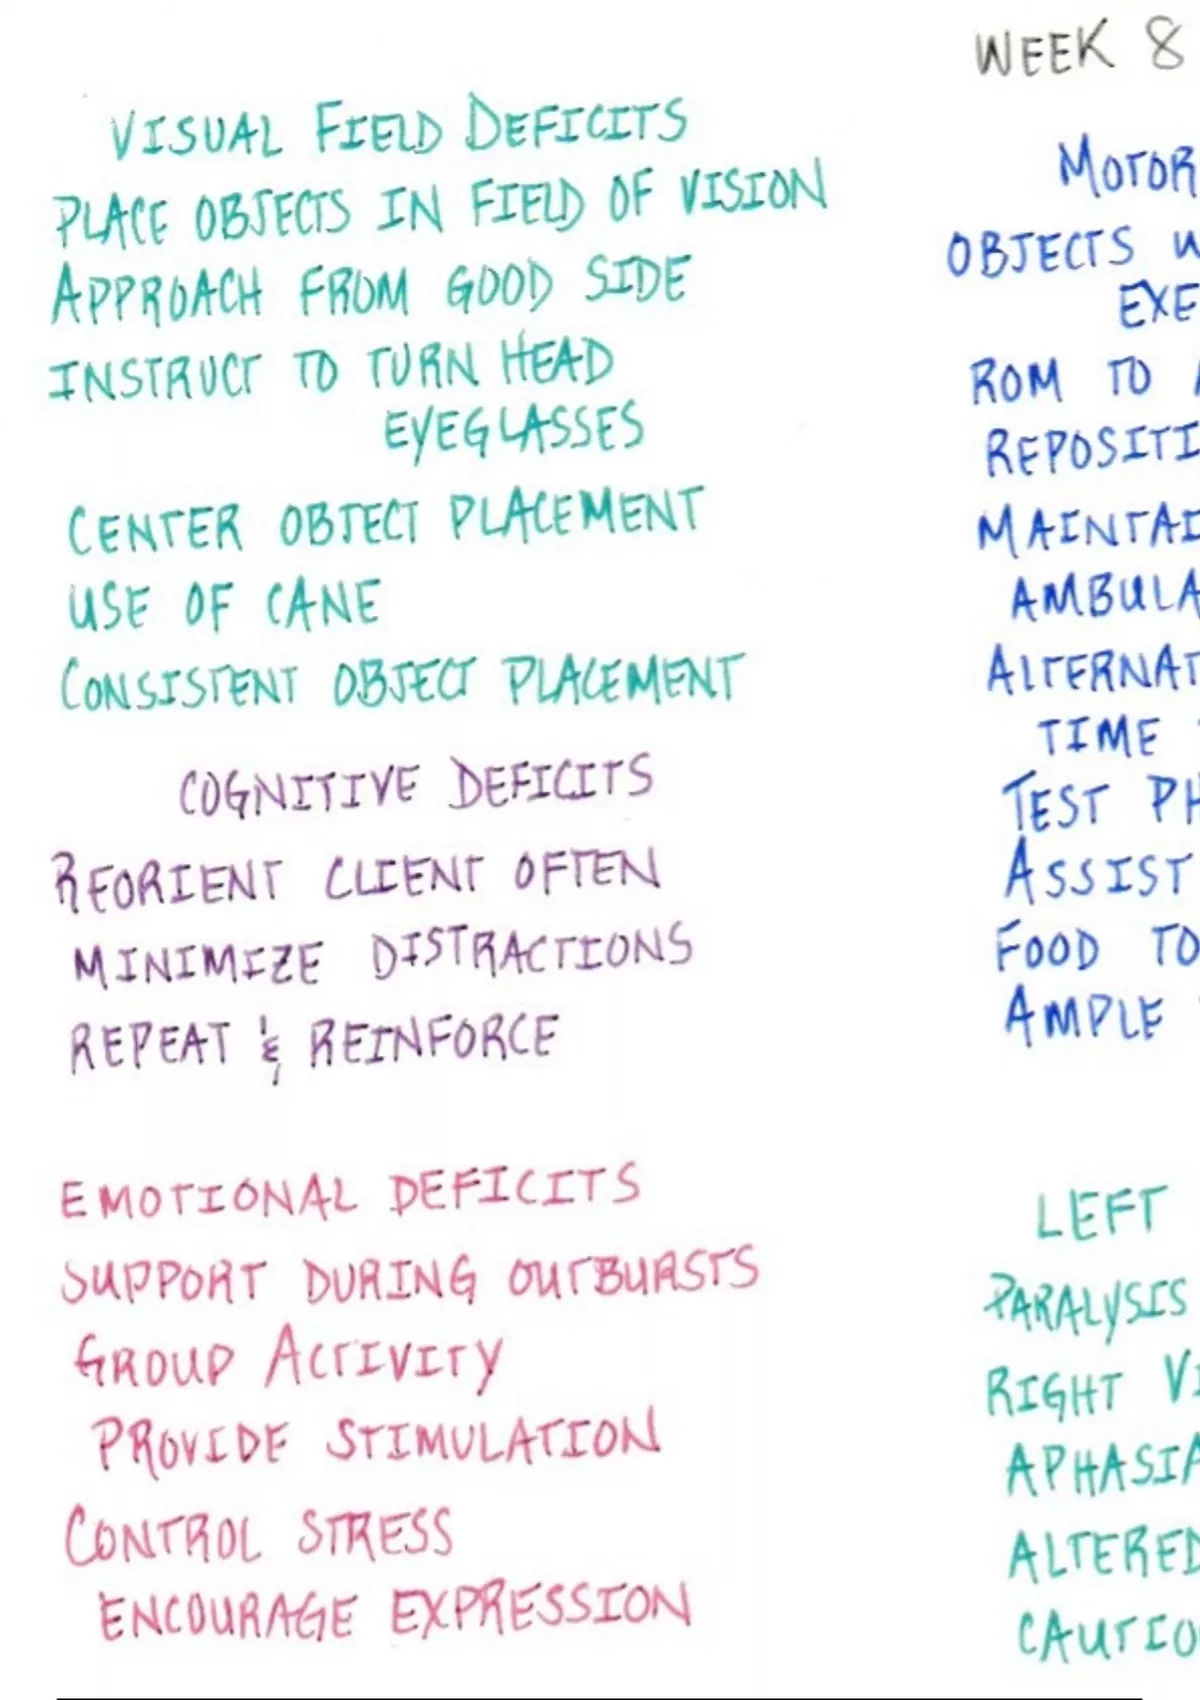 WEEK 8
VISUAL FIELD DEFICITS
PLACE OBJECTS IN FIELD OF VISION
APPROACH FROM GOOD SIDE
INSTRUCT TO TURN HEAD
EYEGLASSES
CENTER OBJECT PLACEMENT
USE OF CANE
CONSISTENT OBJECT PLACEMENT
COGNITIVE DEFICITS
REORIENT CLIENT OFTEN
MINIMIZE DISTRACTIONS
REPEAT & REINFORCE
EMOTIONAL DEFICITS
SUPPORT DURING OUTBURSTS
GROUP ACTIVITY
PROVIDE STIMULATION
CONTROL STRESS
ENCOURAGE EXPRESSION
MOTOR
OBJECTS
EXE
ROM TO
REPOSITI
MAINTAI
AMBULA
ALTERNAT
TIME
TEST PH
ASSIST
FOOD TO
AMPLE
LEFT
PARALYSIS
RIGHT VI
APHASIA
ALTERED
CAUTIO